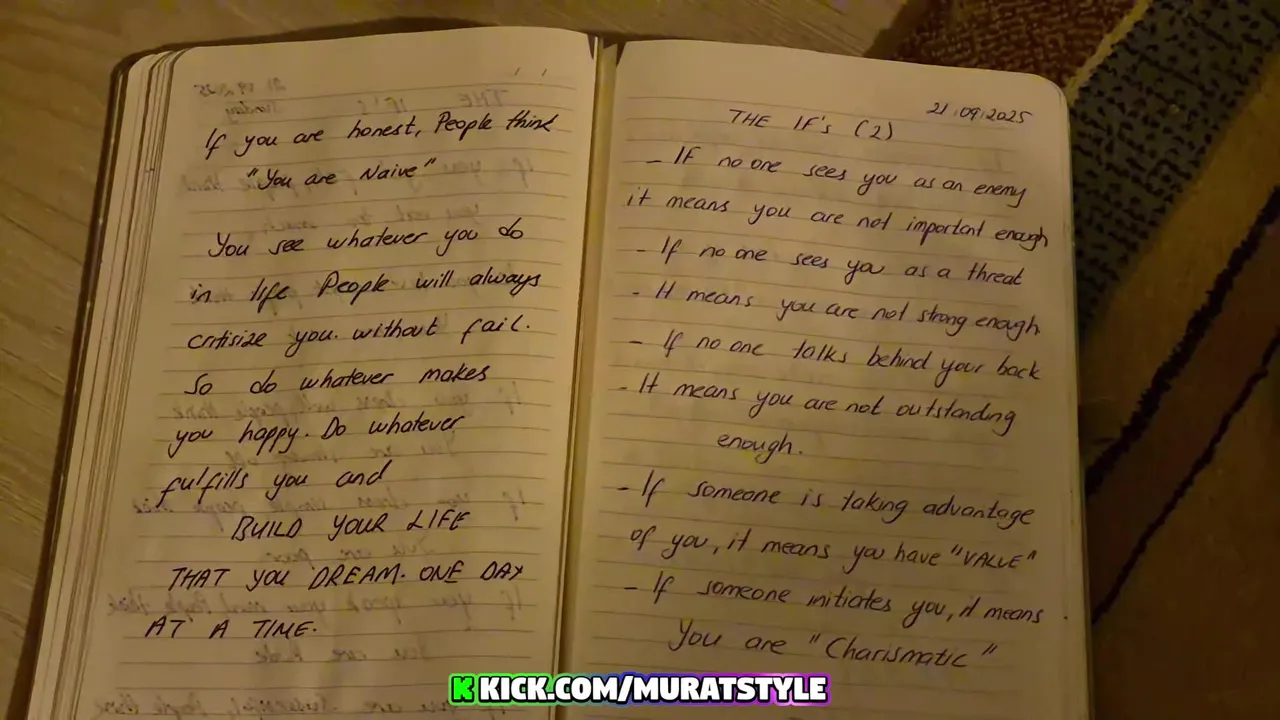 If you are honest, People think
"You are Naive"
You see whatever you do
in life People will always
critisize you. without fail.
So do whatever makes
you happy. Do whatever
fulfills you and
BUILD YOUR LIFE
THAT YOU DREAM. ONE DAY
AT A TIME.
21.09.2025
THE IF's (2)
- IF no one sees you as an enemy
it means you are not important enough
- If no one sees you as a threat
- It means you are not strong enough
- If no one talks behind your back
- It means you are not outstanding
enough.
- If someone is taking advantage
of you, it means you have "VALUE"
- If someone initiates you, it means
You are "Charismatic"
KICK.COM/MURATSTYLE